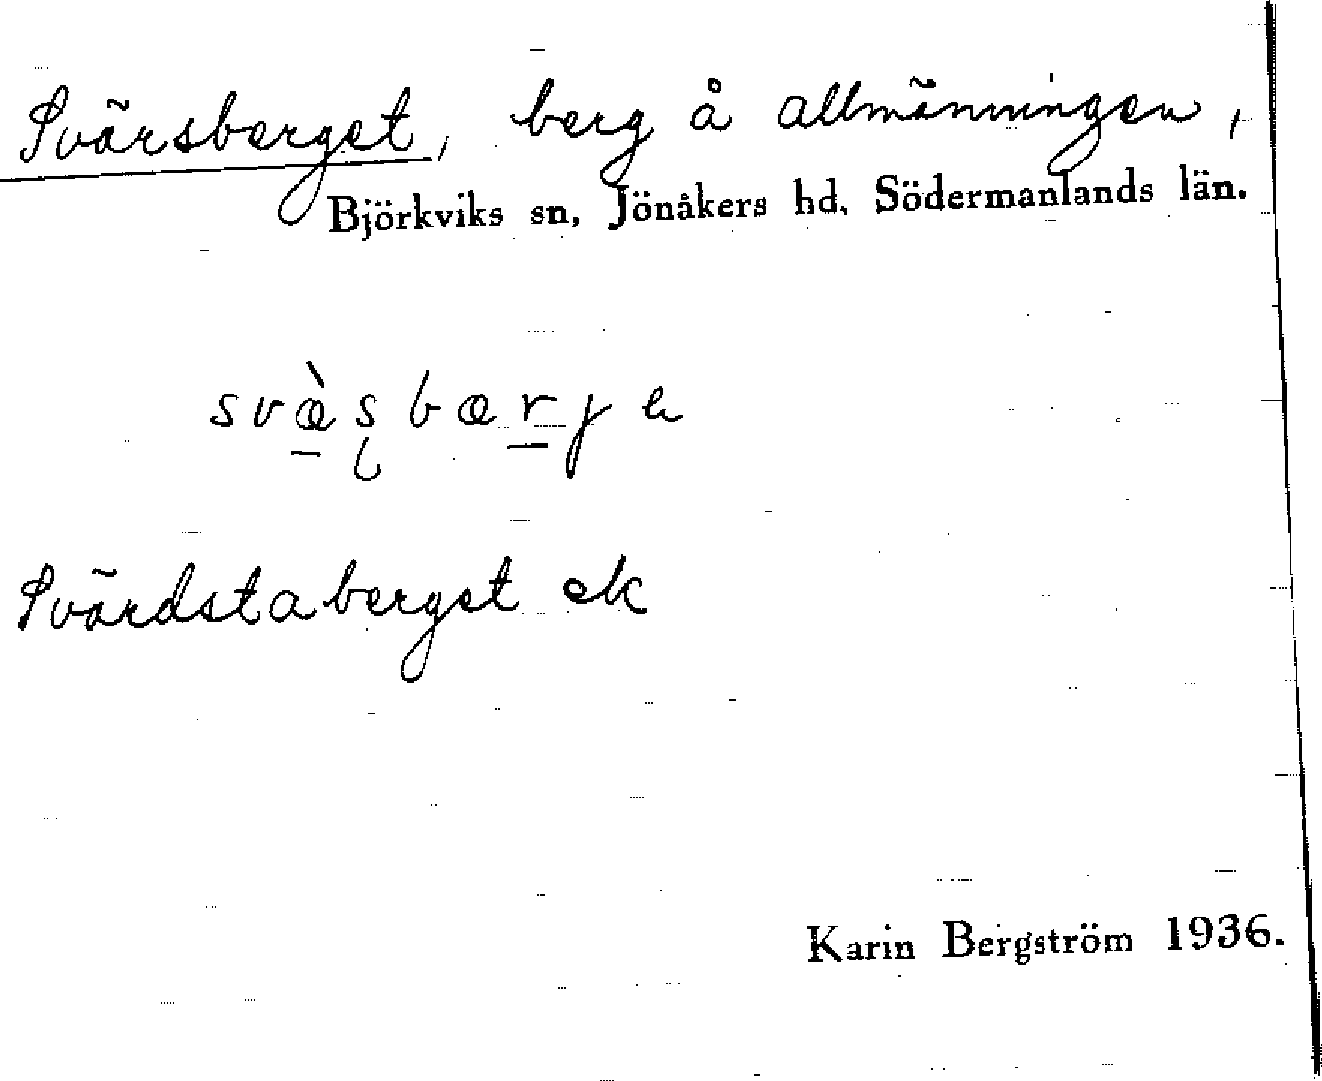 Svärsberget, berg å allmänningen,
Björkviks sn, Jönåkers hd, Södermanlands län.
svæ̀ʂbærjə
Svärdstaberget ek
Karin Bergström 1936.